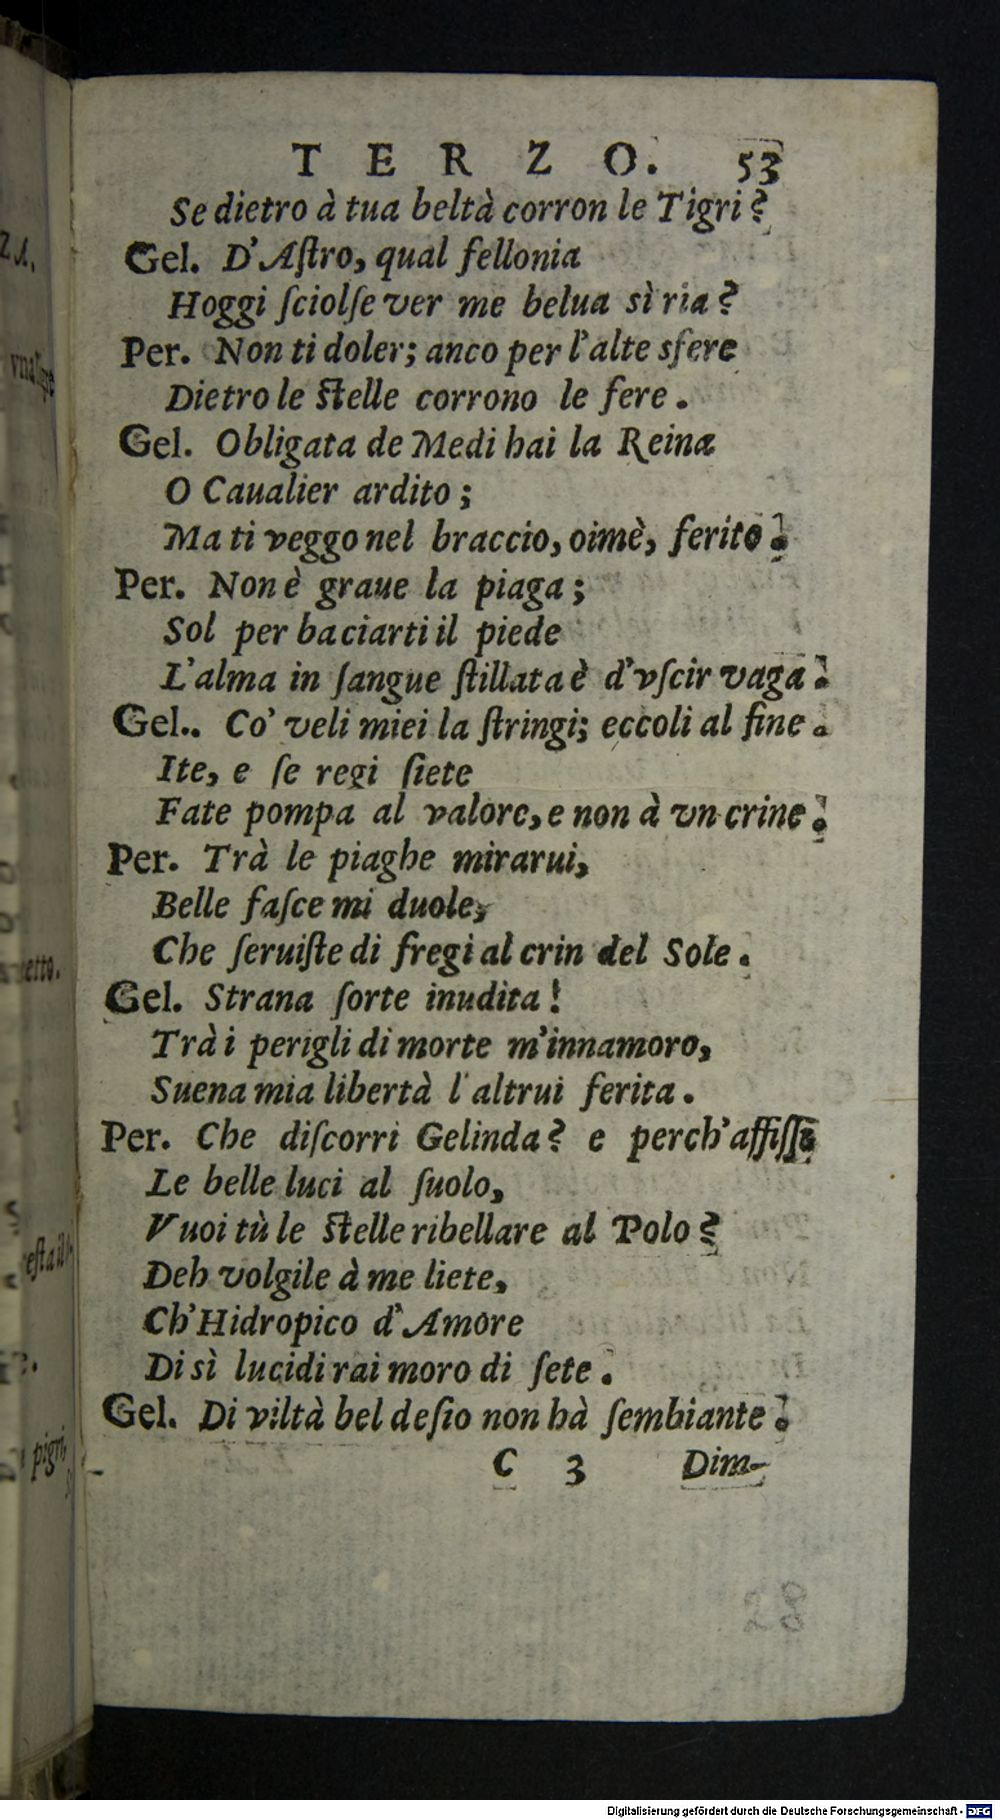 TERZO. 53
Se dietro à tua beltà corron le Tigri?
Gel. D'Aſtro, qual fellonia
Hoggi ſciolſe ver me belua sì ria?
Per. Non ti doler; anco per l'alte sfere
Dietro le Stelle corrono le fere.
Gel. Obligata de Medi hai la Reina
O Caualier ardito;
Ma ti veggo nel braccio, oimè, ferito.
Per. Non è graue la piaga;
Sol per baciarti il piede
L'alma in ſangue ſtillata è d'vſcir vaga.
Gel.. Co' veli miei la ſtringi; eccoli al fine.
Ite, e ſe regi ſiete
Fate pompa al valore, e non à vn crine.
Per. Trà le piaghe mirarui,
Belle faſce mi duole,
Che ſeruiſte di fregi al crin del Sole.
Gel. Strana ſorte inudita!
Trà i perigli di morte m'innamoro,
Suena mia libertà l'altrui ferita.
Per. Che diſcorri Gelinda? e perch'affiſſe
Le belle luci al ſuolo,
Vuoi tù le Stelle ribellare al Polo?
Deh volgile à me liete,
Ch'Hidropico d'Amore
Di sì lucidi rai moro di ſete.
Gel. Di viltà bel deſio non hà ſembiante.
C 3 Dim-
28
Digitalisierung gefördert durch die Deutsche Forschungsgemeinschaft - DFG